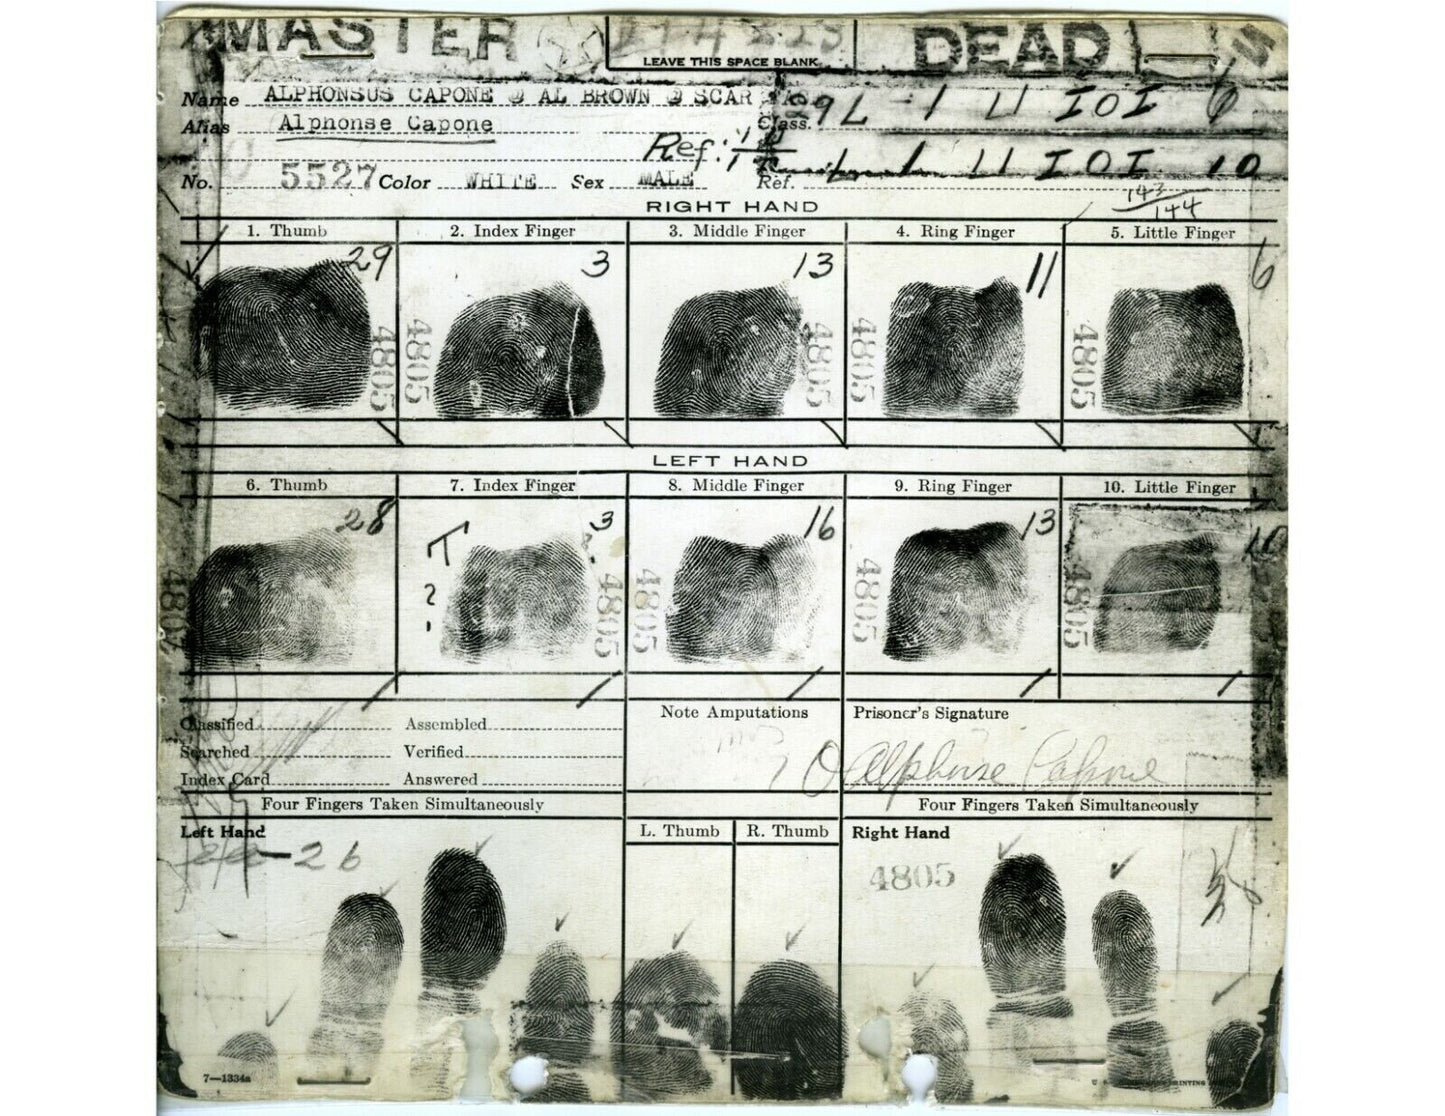 MASTER DEAD
LEAVE THIS SPACE BLANK
Name ALPHONSUS CAPONE @ AL BROWN @ SCAR
Class. 29 L 1 U IOI 6
Alias Alphonse Capone
Ref: 1 1 U IOI 10
No. 5527 Color WHITE Sex MALE Ref.
143
144
RIGHT HAND
1. Thumb 2. Index Finger 3. Middle Finger 4. Ring Finger 5. Little Finger
29 3 13 11 6
4805 4805 4805 4805 4805
LEFT HAND
6. Thumb 7. Index Finger 8. Middle Finger 9. Ring Finger 10. Little Finger
28 T 3 16 13 10
?
4805 4805 4805 4805 4805
Classified Assembled Note Amputations Prisoner's Signature
Searched Verified
Index Card Answered Alphonse Capone
Four Fingers Taken Simultaneously Four Fingers Taken Simultaneously
Left Hand L. Thumb R. Thumb Right Hand
26
4805
7—1334a
PRINTING